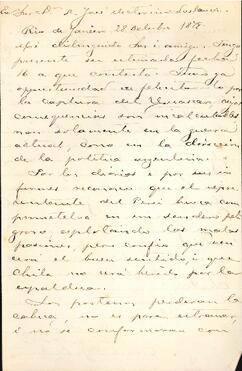 Exmo. Sr. Dn. José Victorino Lastarria.
Rio de Janeiro 28 Octubre 1879
Mi distinguido Sr. i amigo. Tengo
presente su estimada fecha
16 a que contesto. Tenia ya
oportunidad de felicitarlo por
la captura del Huascar cuyas
consecuencias son incalculables
no solamente en la guerra
actual, sino en la direccion
de la politica arjentina.
Por los diarios i por sus in
formes reconozco que el repre
sentante del Perú busca com
prometerla en un sendero peli
groso, esplotando las malas
pasiones, pero confio que ven
cerá el buen sentido, i que
Chile no será herido por la
espalda.
Los porteños perderan la
cabeza, no es para estrañar,
i no se conformaran con